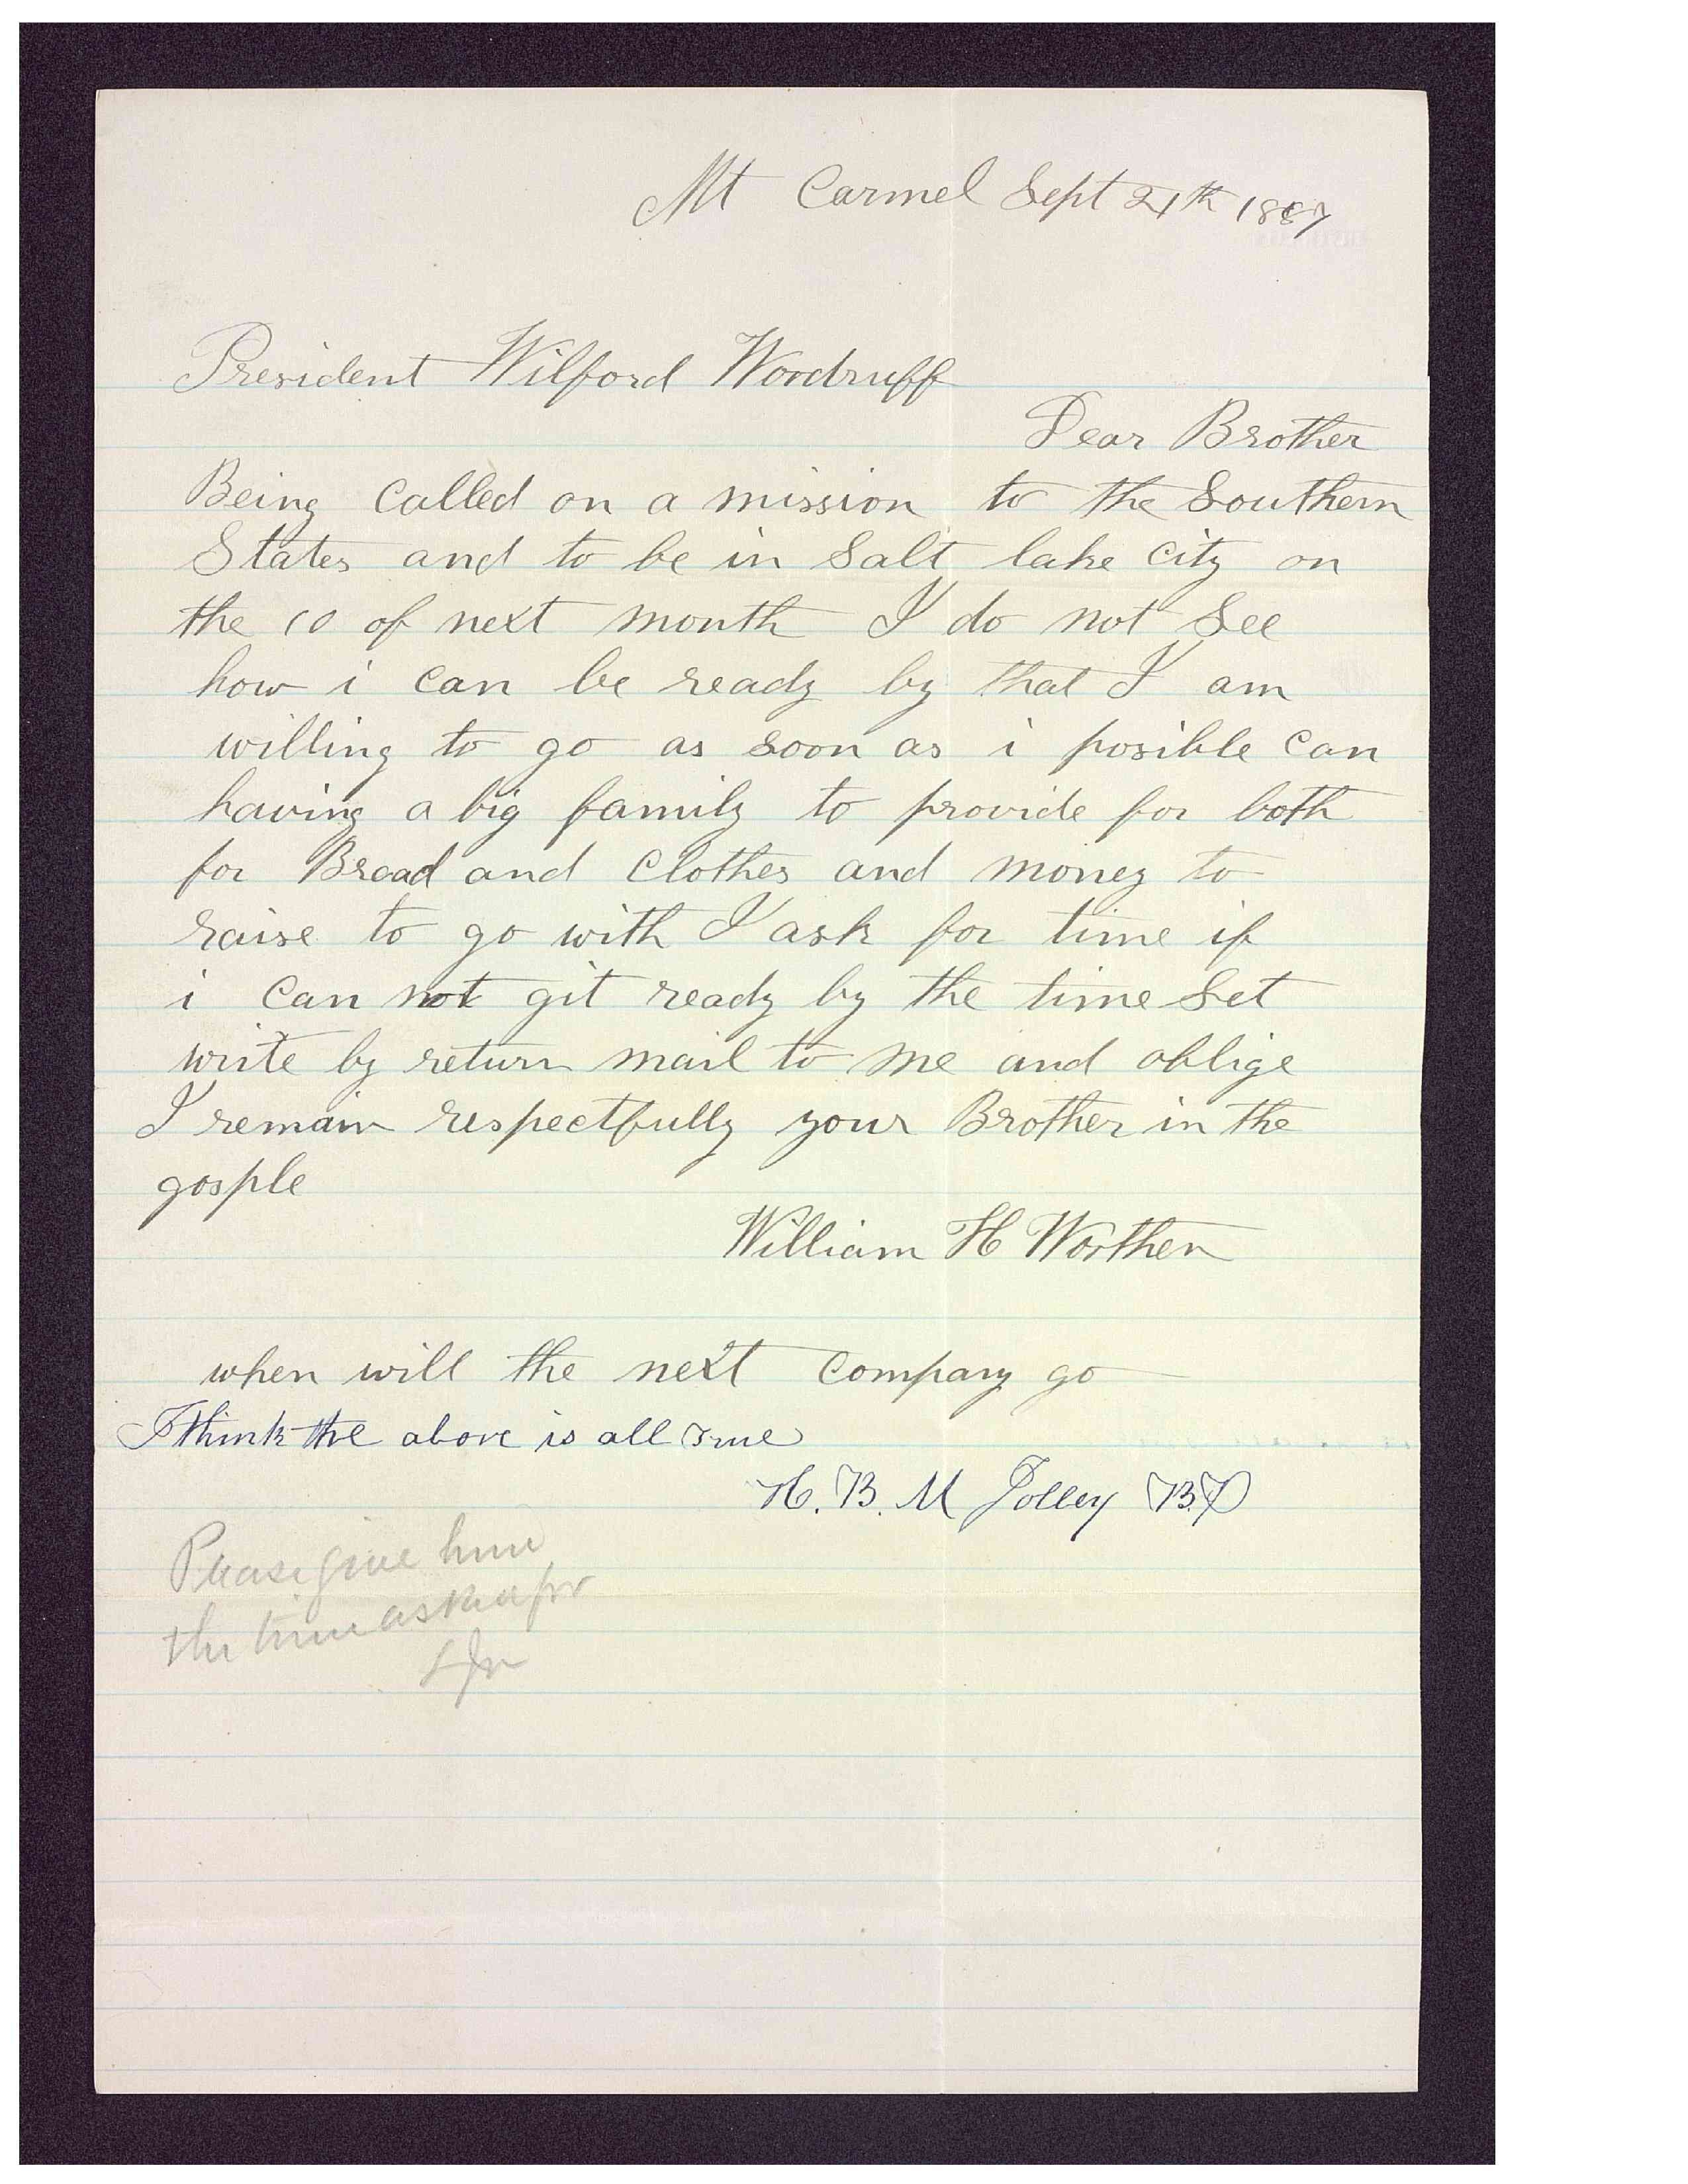 Mt Carmel Sept 21th 1887
President Wilford Woodruff
Dear Brother
Being called on a mission to the Southern
States and to be in Salt lake city on
the 10 of next month I do not See
how i can be ready by that I am
willing to go as soon as i posible can
having a big family to provide for both
for Bread and clothes and money to
raise to go with I ask for time if
i can not git ready by the time Set
write by return mail to me and oblige
I remain respectfully your Brother in the
gosple
William H Worthen
when will the next company go
I think the above is all true
H. B. M Jolley BP
Please give him
the time asked for